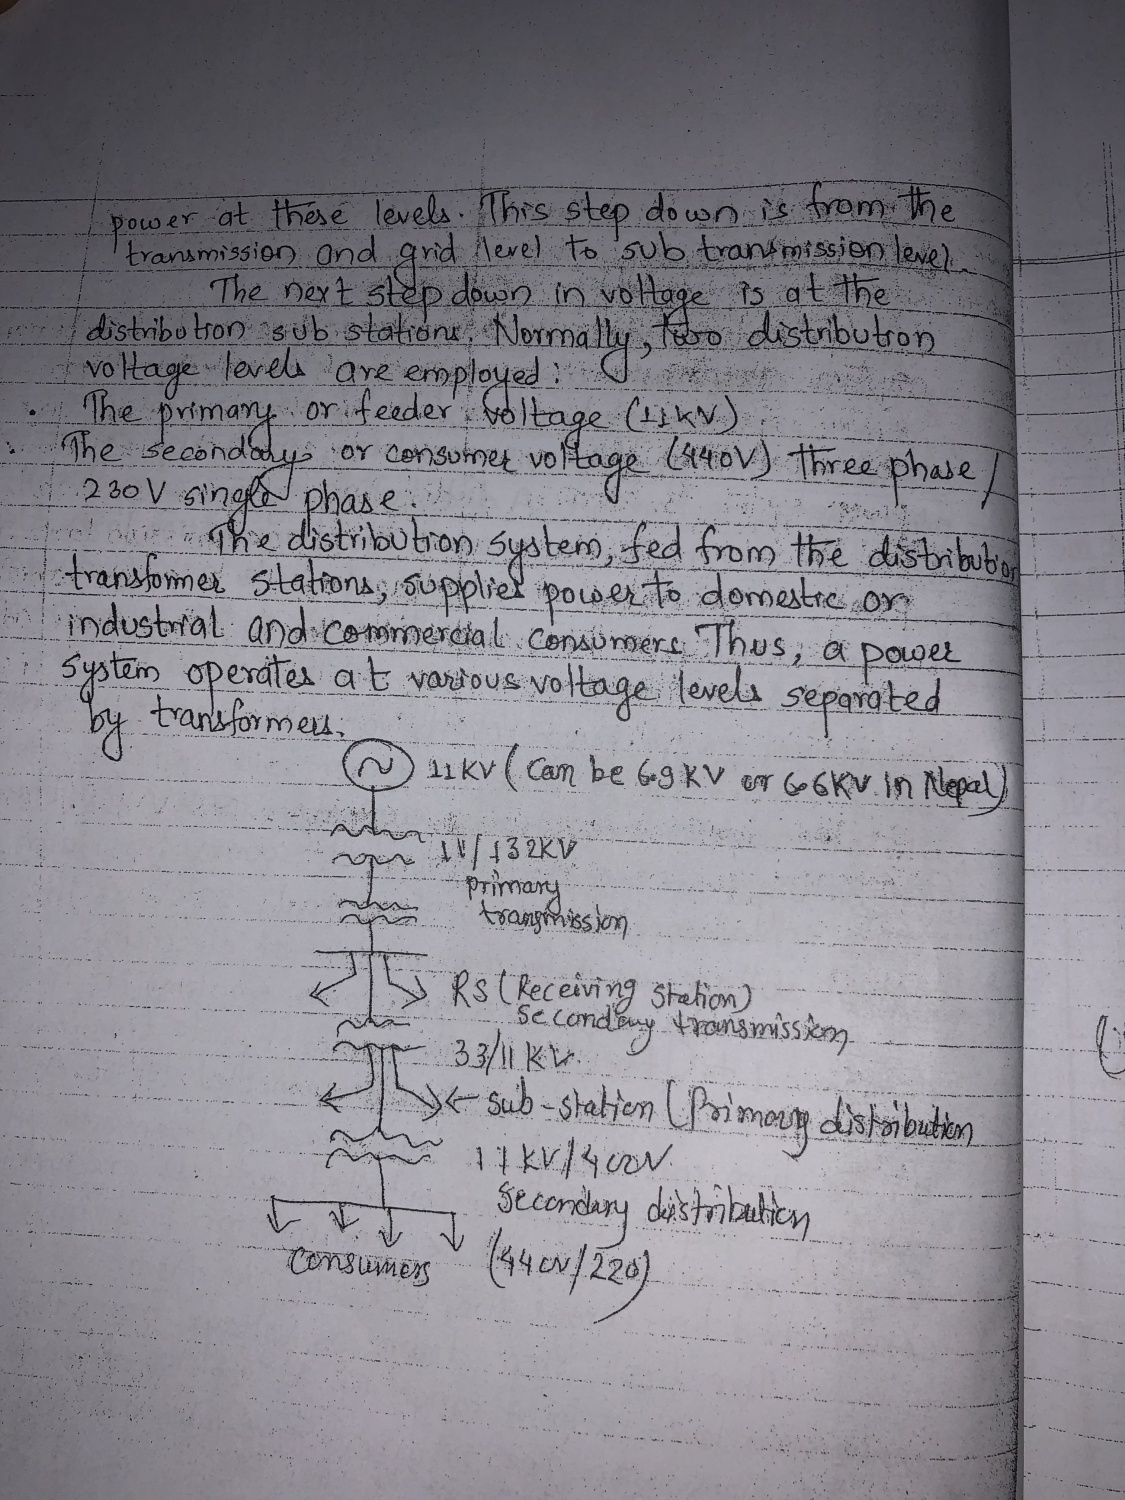 power at these levels. This step down is from the
transmission and grid level to sub transmission level.
The next step down in voltage is at the
distribution sub stations. Normally, two distribution
voltage levels are employed:
. The primary or feeder voltage (11KV)
. The secondary or consumer voltage (440V) three phase/
230V single phase.
The distribution system, fed from the distribution
transformer stations, supplies power to domestic or
industrial and commercial consumers. Thus, a power
system operates at various voltage levels separated
by transformers.
11KV (Can be 6.9KV or 66KV in Nepal)
11/132KV
primary
transmission
RS (Receiving station)
Secondary transmission
33/11 KV
sub-station (Primary distribution
11KV/400V
Secondary distribution
Consumers (440V/220)